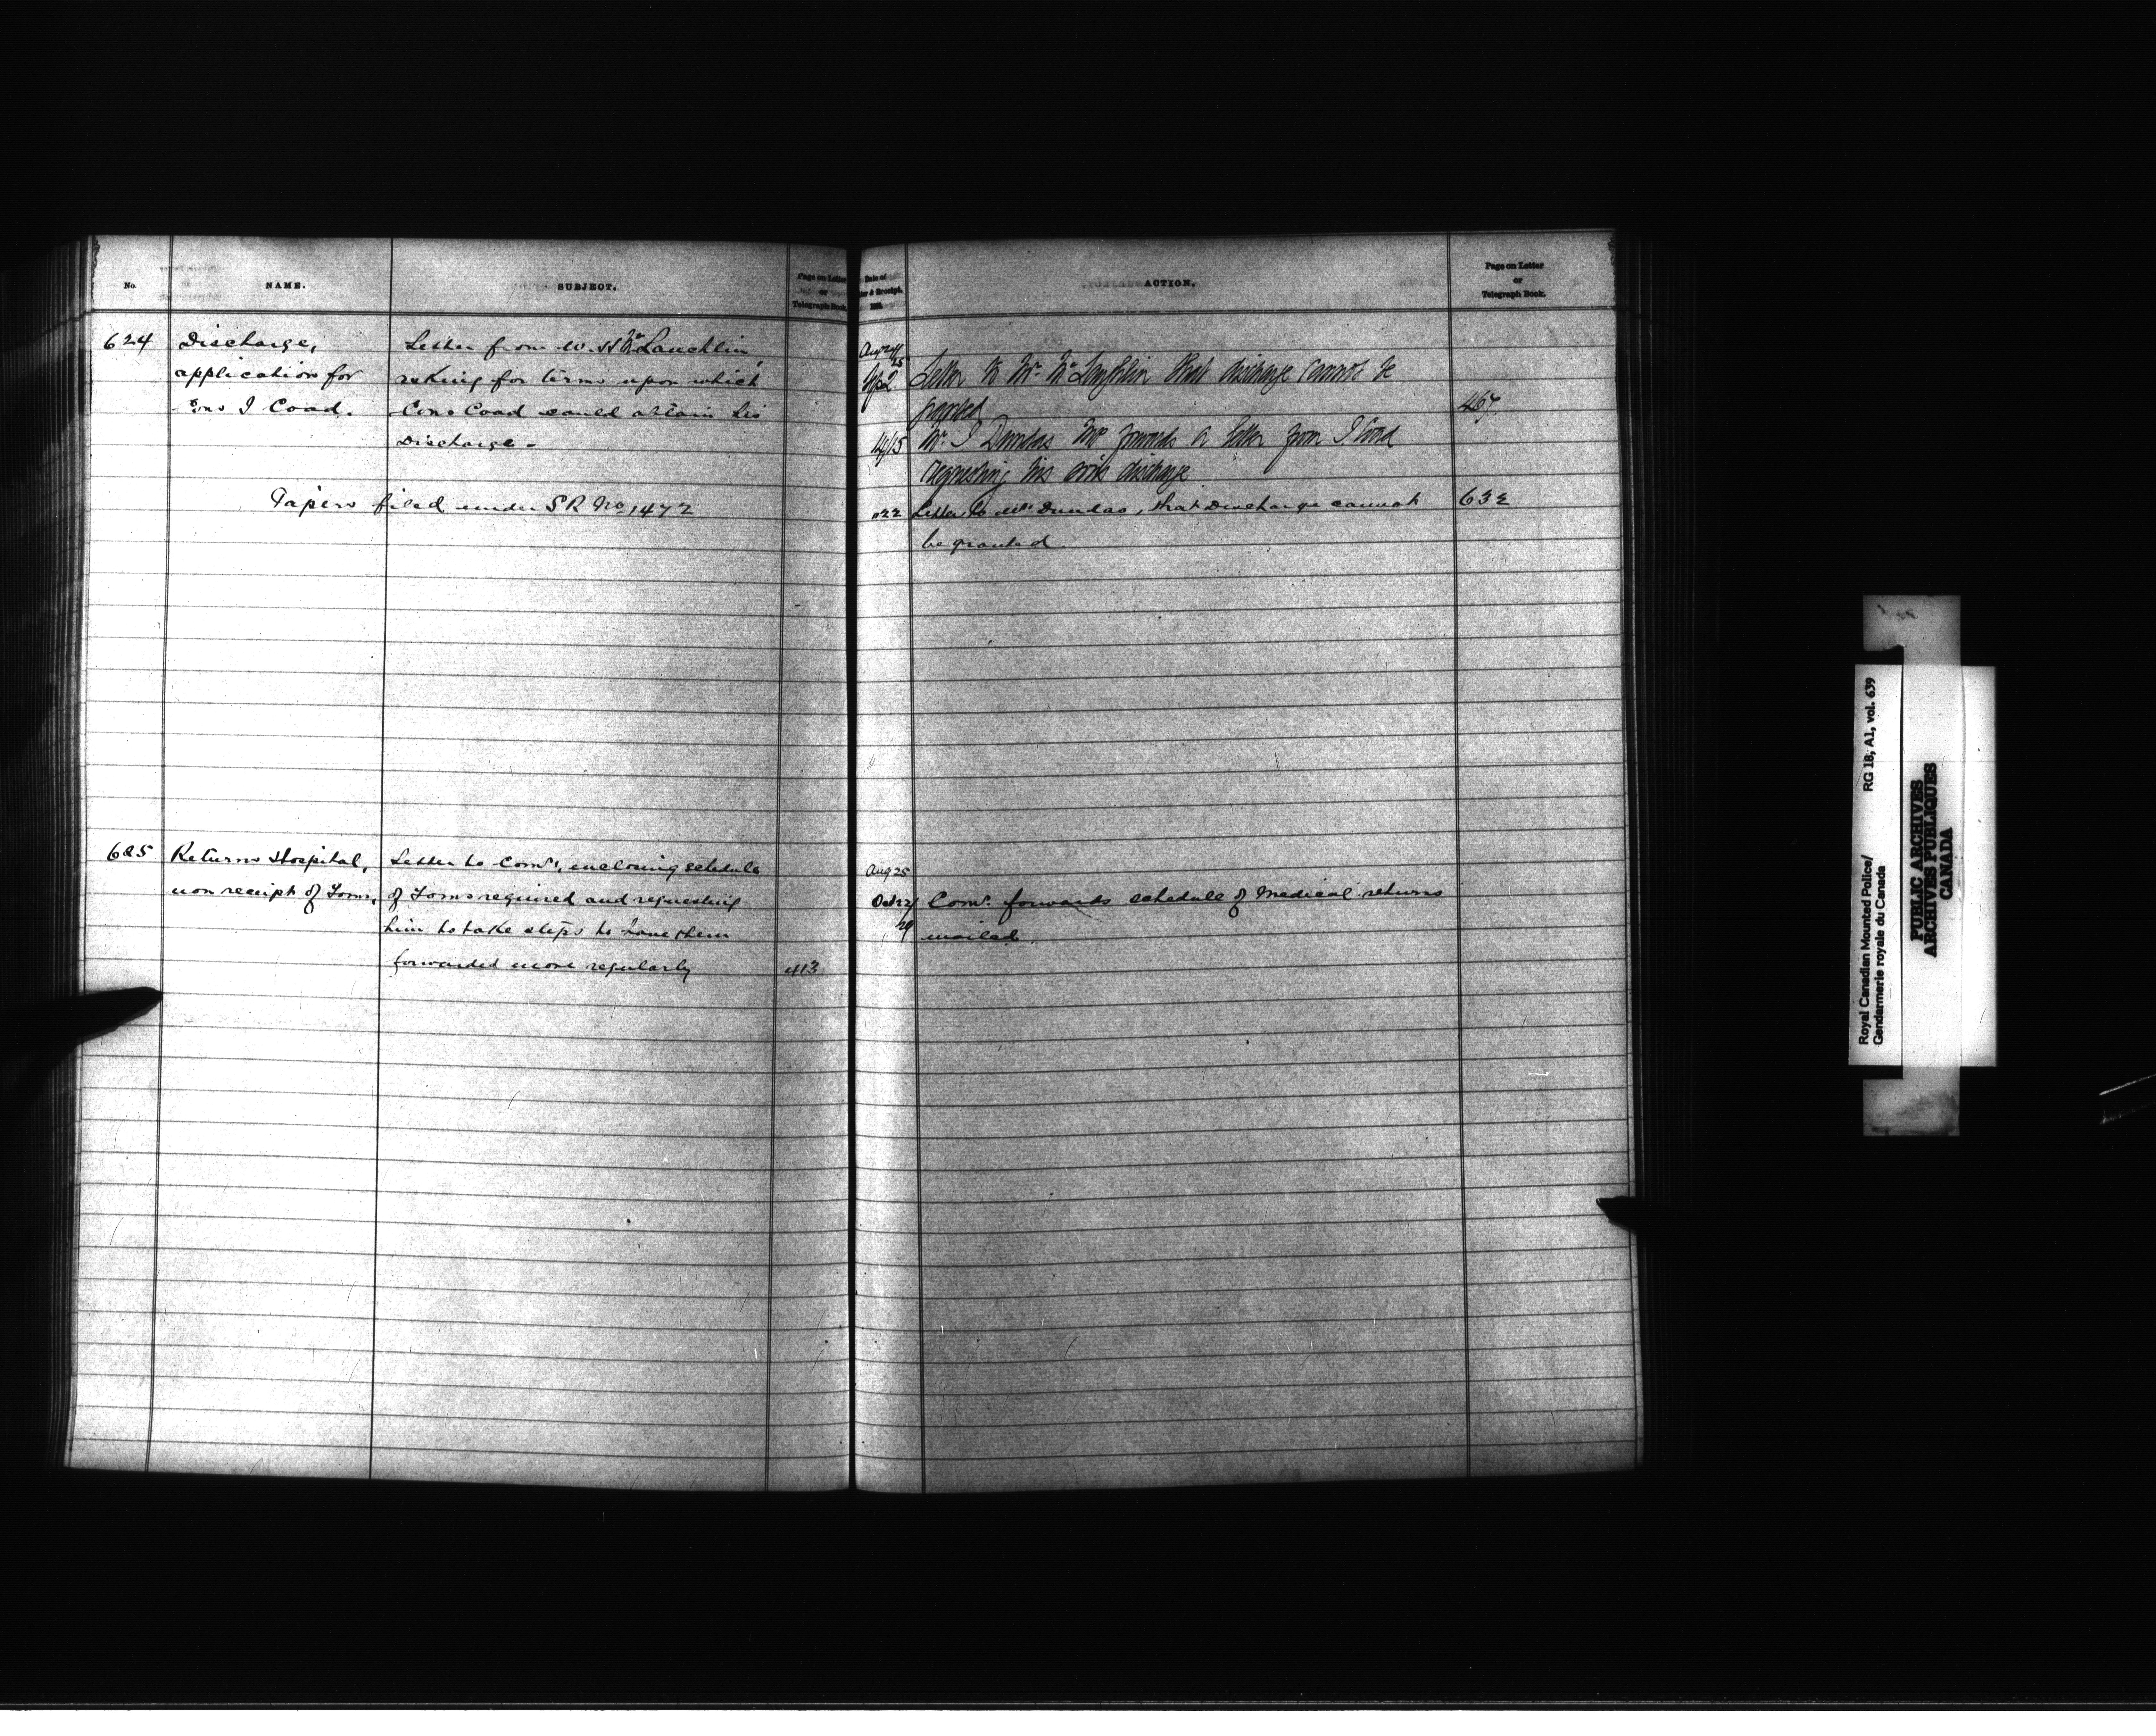 No.
NAME.
SUBJECT.
Page on Letter
or
Telegraph Book.
624
Discharge,
application for
Cons I Coad.
Letter from W. H McLauchlin,
asking for terms upon which
Cons Coad could obtain his
Discharge -
Papers filed under S R No 1472
625
Returns Hospital,
non receipt of Forms,
Letter to Comr, enclosing schedule
of Forms required and requesting
him to take steps to have them
forwarded more regularly
413
Date of
& Receipt.
ACTION.
Page on Letter
or
Telegraph Book.
Aug 24/25
Sep 2
Letter to Mr. McLaughlin that discharge cannot be
granted
467
14/15
Mr. J Dundas MP forwards a letter from I Coad
requesting his sons discharge
" 22
Letter to Mr Dundas, that Discharge cannot
be granted
632
Aug 25
Oct 22/29
Comr. forwards schedule of Medical returns
mailed.
Royal Canadian Mounted Police/
Gendarmerie royale du Canada
RG 18, A1, vol. 639
PUBLIC ARCHIVES
ARCHIVES PUBLIQUES
CANADA